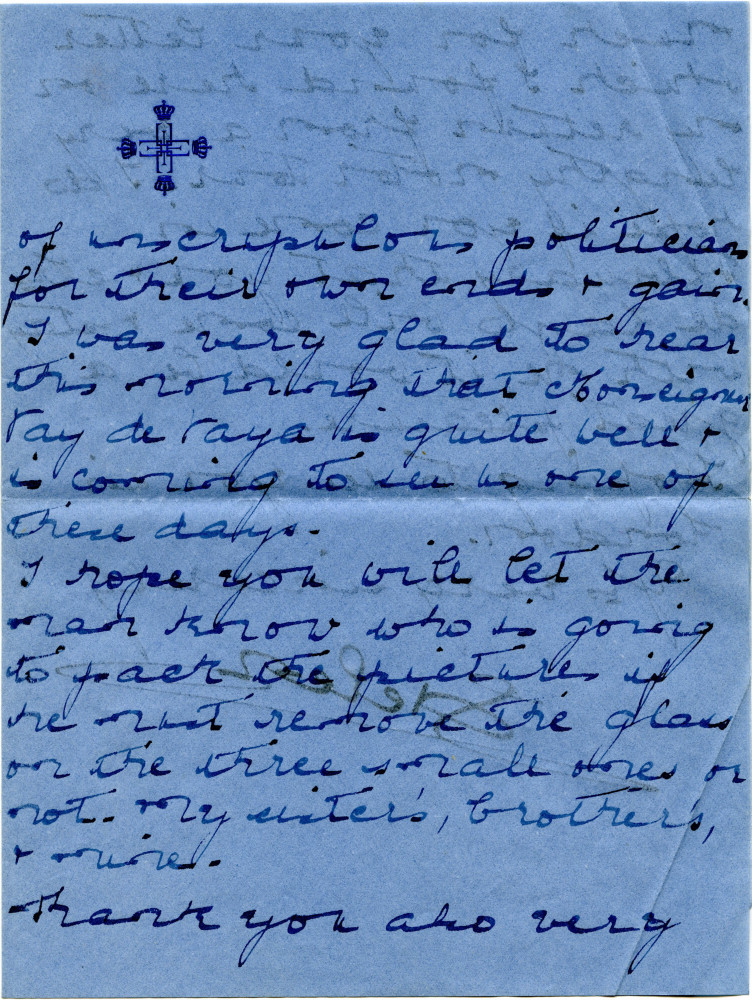 of unscrupulous politicians
for their own ends & gain.
I was very glad to hear
this morning that Monseigneur
Vay de Vaya is quite well &
is coming to see us one of
these days.
I hope you will let the
man know who is going
to pack the pictures if
he must remove the glass
on the three small ones or
not. My sister's, brother's,
& mine.
Thank you also very